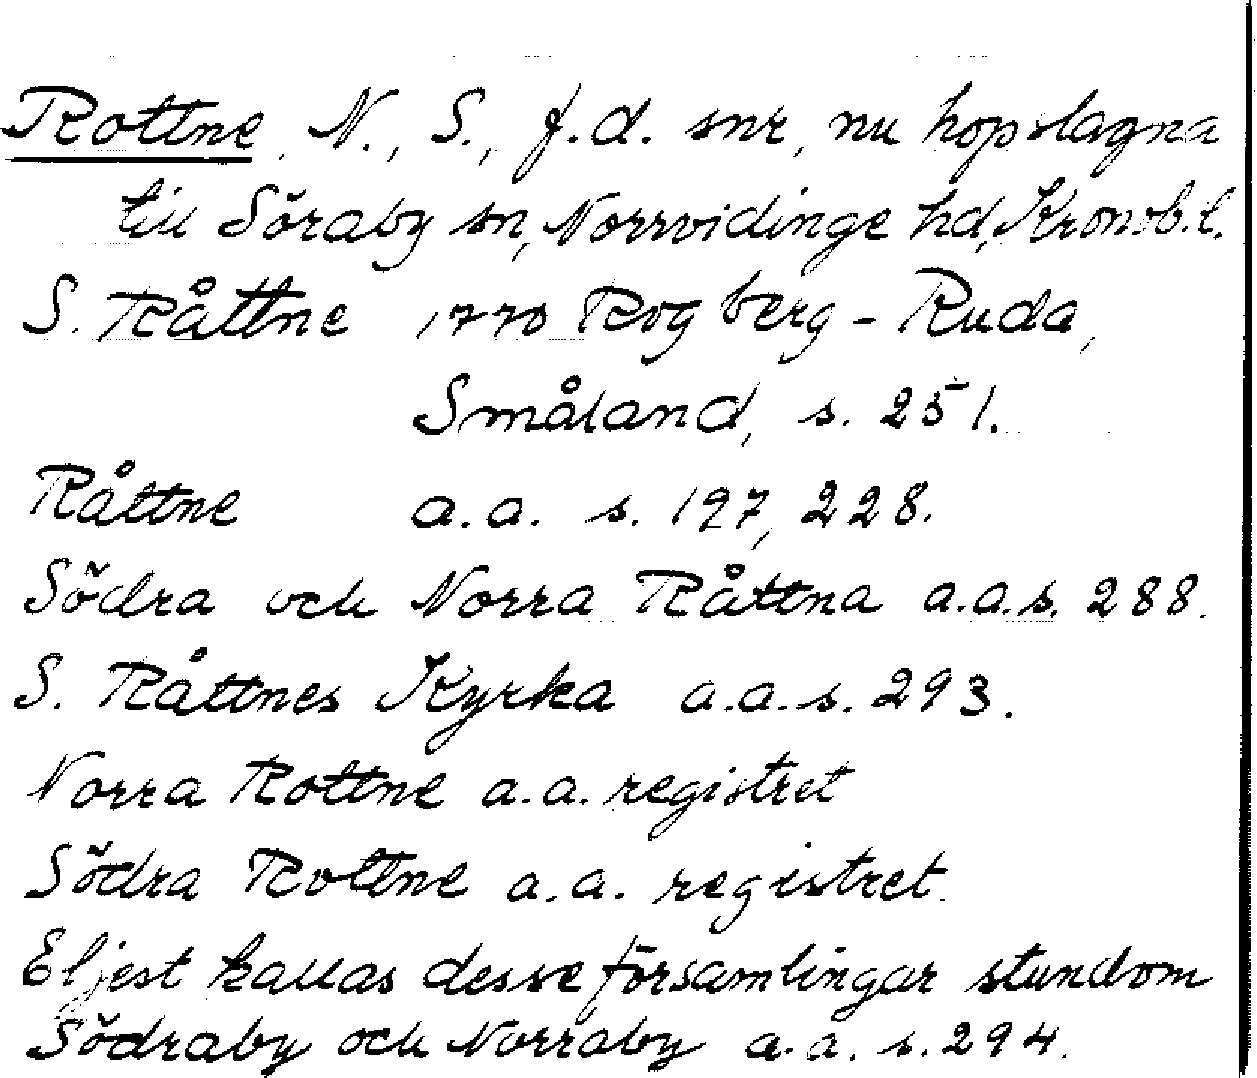 Rottne, N., S., f.d. snr, nu hopslagna
till Söraby sn, Norrvidinge hd, Kronob.l.
S. Råttne 1770 Rogberg - Ruda,
Småland, s. 251.
Råttne a.a. s. 197, 228.
Södra och Norra Råttna a.a.s. 288.
S. Råttnes Kyrka a.a.s. 293.
Norra Rottne a.a. registret
Södra Rottne a.a. registret.
Eljest kallas desse församlingar stundom
Södraby och Norraby a.a. s. 294.